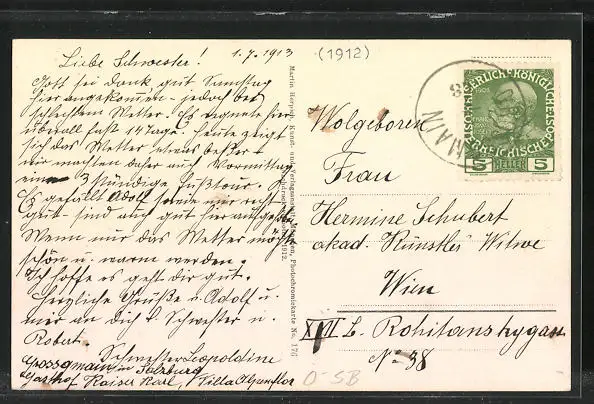 Liebe Schwester! 1.7.1913
Gott sei dank gut Samstag
hier angekommen – jedoch bei
schlechtem Wetter. Es regnete hier
überall fast 14 Tage. Heute zeigt
sich das Wetter etwas besser u.
wir machten daher auch Vormittag
eine 3 stündige Fußtour.
Es gefällt Adolf sowie mir recht
gut – sind auch gut hier
Wenn nur das Wetter möchte
schön u. warm werden.
Ich hoffe es geht dir gut.
Herzliche Grüße v. Adolf u.
mir an dich l. Schwester u.
Robert.
Schwester Leopoldine
Grossgmain in Salzburg
Gasthof Kaiser Karl, Villa
(1912)
Martin Herpich, Kunst- und Verlagsanstalt, München, Photochromiekarte No. 176
1912.
KAISERLICH KÖNIGLICHE
ÖSTERREICHISCHE
1908
5 HELLER 5
MAIN
Wolgeboren
Frau
Hermine Schubert
akad. Künstlers Witwe
Wien
XVII L. Rokitanskygasse
No 38
O-SB